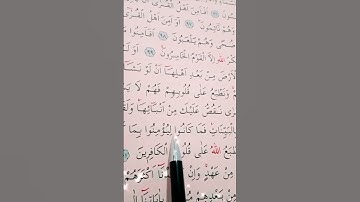 أَفَأَمِنَ أَهْلُ الْقُرَى
وَهُمْ نَائِمُونَ ﴿٩٧﴾ أَوَ أَمِنَ أَهْلُ الْقُرَى
ضُحًى وَهُمْ يَلْعَبُونَ ﴿٩٨﴾ أَفَأَمِنُوا
اللهِ إِلَّا الْقَوْمُ الْخَاسِرُونَ ﴿٩٩﴾
مِنْ بَعْدِ أَهْلِهَا أَنْ لَوْ نَشَاءُ
وَنَطْبَعُ عَلَى قُلُوبِهِمْ فَهُمْ لَا
نَقُصُّ عَلَيْكَ مِنْ أَنْبَائِهَا
بِالْبَيِّنَاتِ فَمَا كَانُوا لِيُؤْمِنُوا بِمَا
اللهُ عَلَى قُلُوبِ الْكَافِرِينَ
مِنْ عَهْدٍ وَإِنْ وَجَدْنَا أَكْثَرَهُمْ
مِنْ بَعْدِهِمْ مُوسَى بِآيَاتِنَا